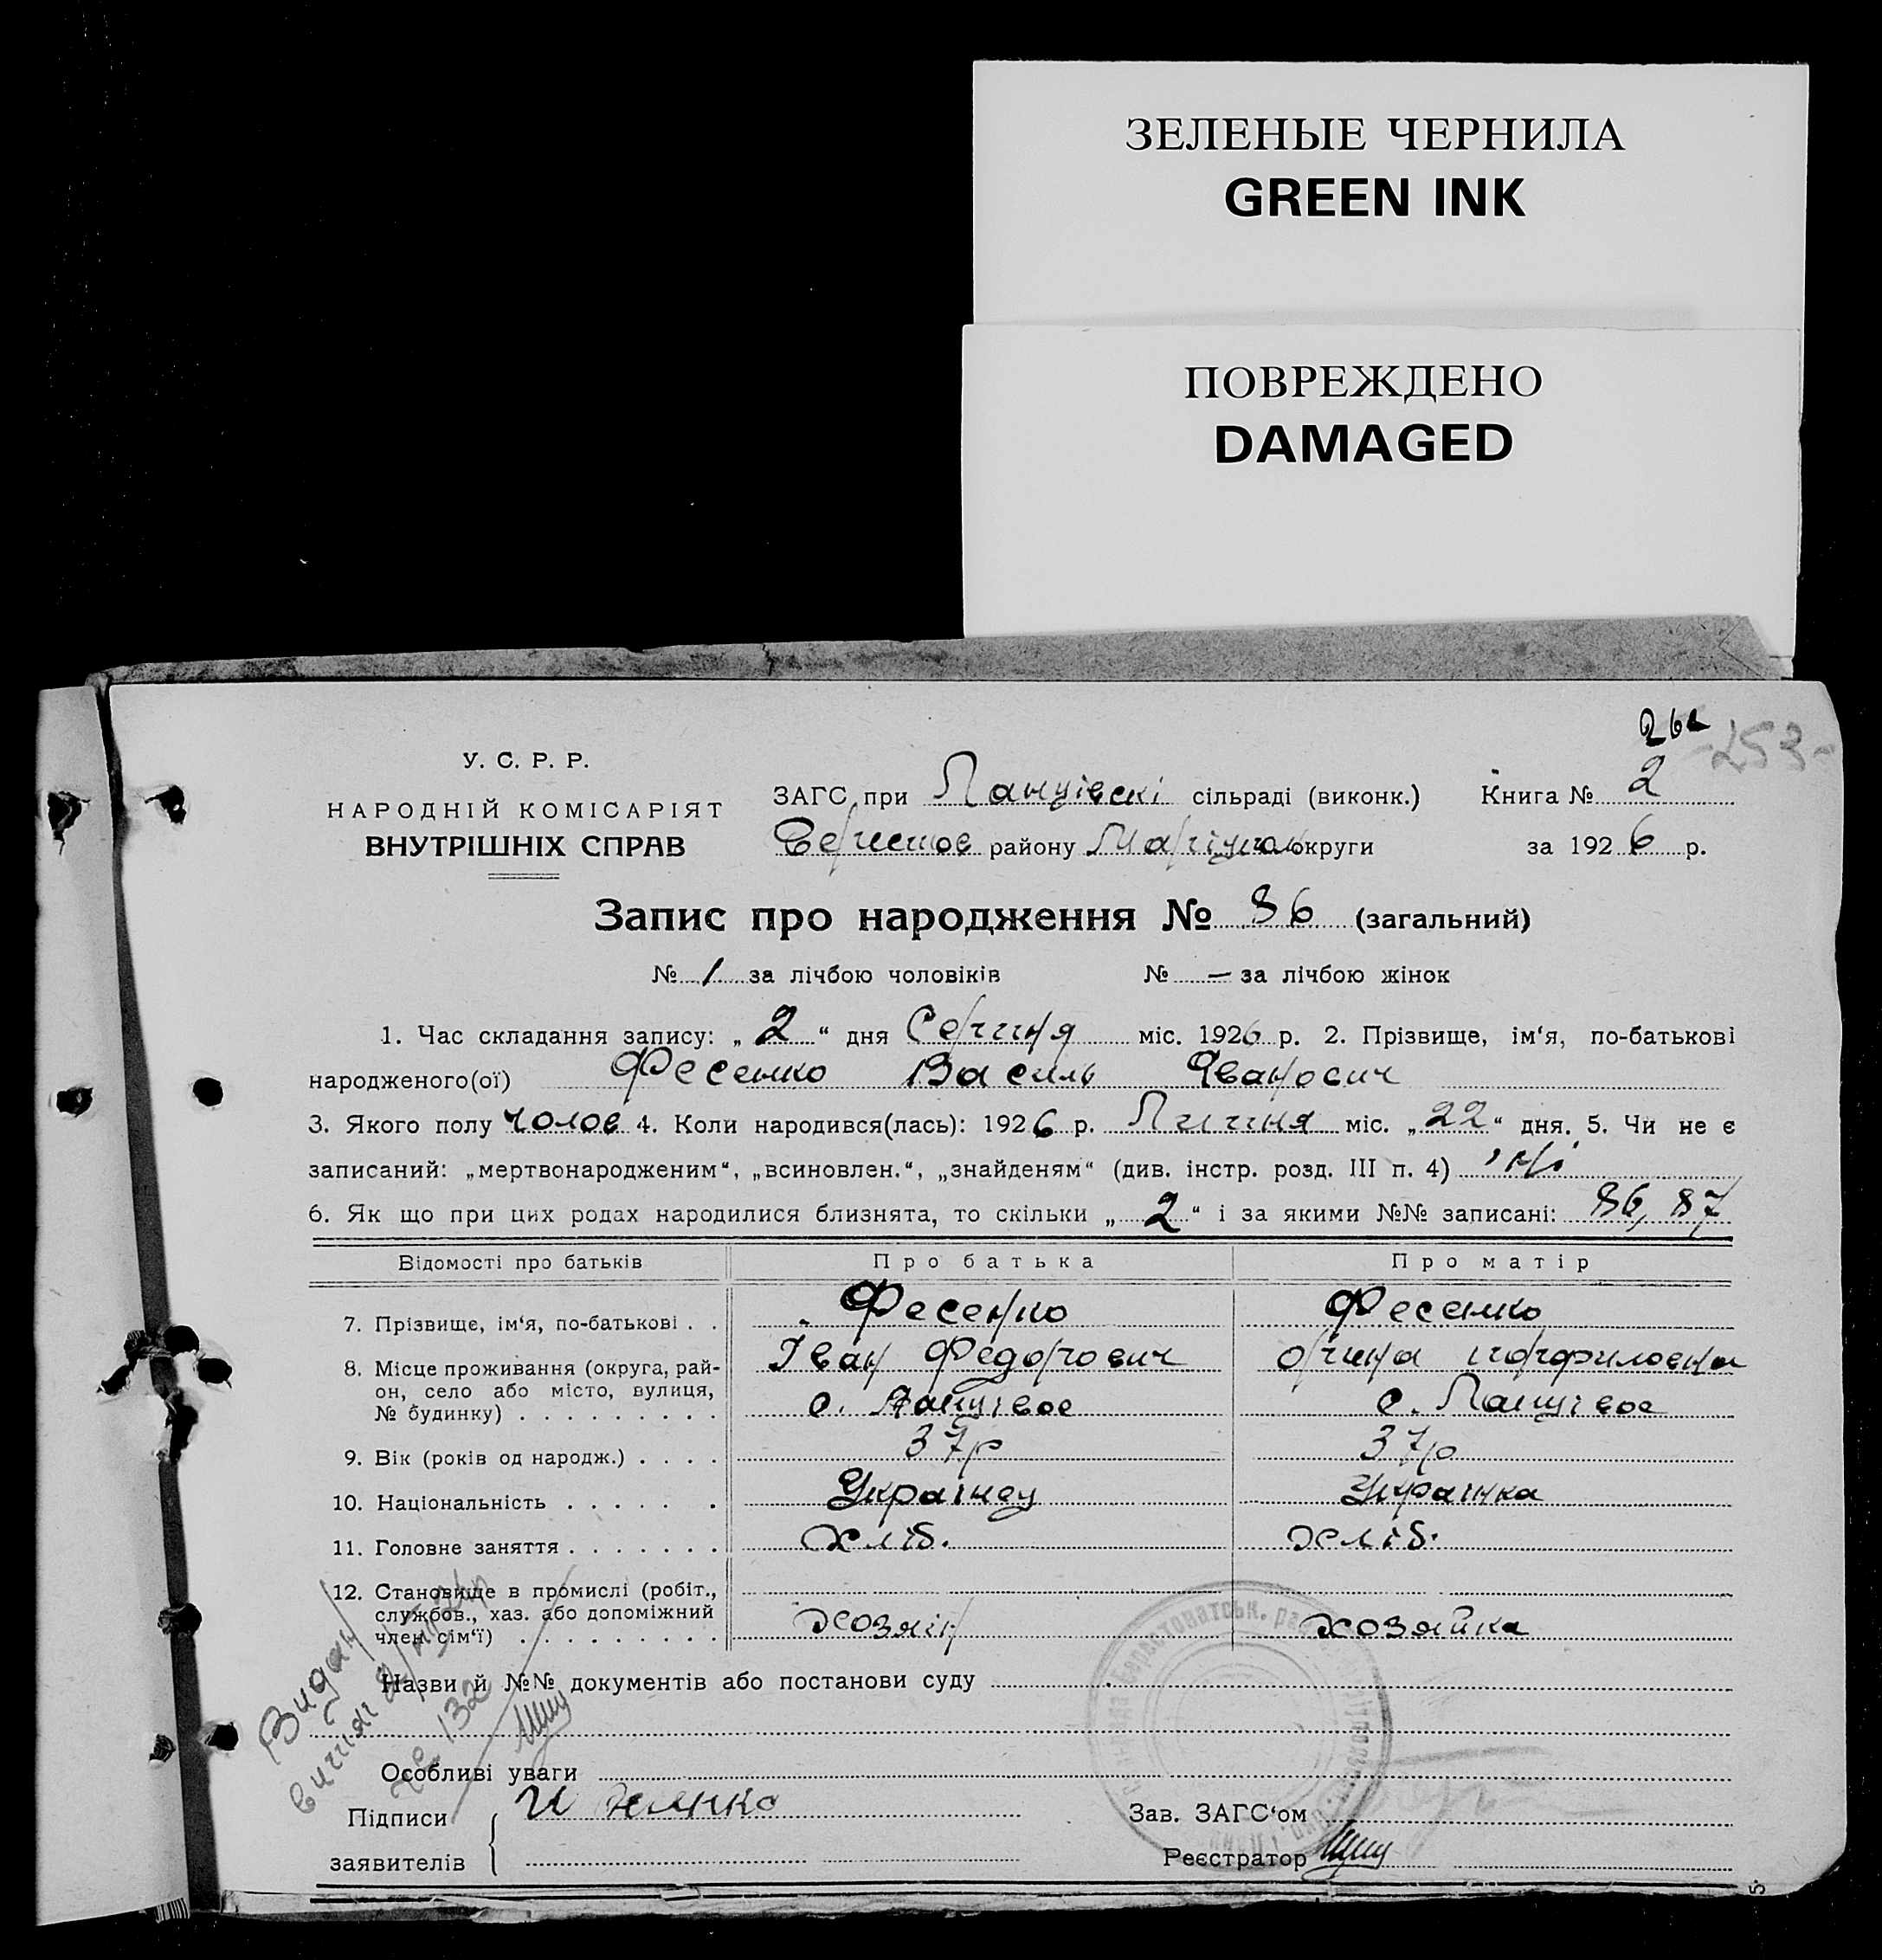 ЗЕЛЕНЫЕ ЧЕРНИЛА
GREEN INK
ПОВРЕЖДЕНО
DAMAGED
253-
У. С. Р. Р.
НАРОДНІЙ КОМІСАРІЯТ
ВНУТРІШНІХ СПРАВ
ЗАГС при Ланцівскі сільраді (виконк.) Книга № 2
району округи за 1926 р.
Запис про народження № 86 (загальний)
№ 1 за лічбою чоловіків № — за лічбою жінок
1. Час складання запису: „ 2 “ дня Серпня міс. 1926 р. 2. Прізвище, ім‘я, по-батькові
народженого(ої) Фесенко Василь Іванович
3. Якого полу чолов 4. Коли народився(лась): 1926 р. Липня міс. „22“ дня. 5. Чи не є
записаний: „мертвонародженим“, „всиновлен.“, „знайденям“ (див. інстр. розд. III п. 4) ні
6. Як що при цих родах народилися близнята, то скільки „ 2 “ і за якими №№ записані: 86, 87
Відомості про батьків Про батька Про матір
7. Прізвище, ім‘я, по-батькові . . Фесенко Фесенко
Іван Федорович
8. Місце проживання (округа, рай-
он, село або місто, вулиця,
№ будинку) . . . . . . . . . с. Ланцівое с. Ланцівое
9. Вік (років од народж.) . . . . 37р 37р
10. Національність . . . . . . Українец Українка
11. Головне заняття . . . . . . . хліб. хліб.
12. Становище в промислі (робіт.,
службов., хаз. або допоміжний
член сім‘ї) . . . . . . . . . хозяін хозяйка
Назви й №№ документів або постанови суду
Особливі уваги
Підписи
заявителів
Зав. ЗАГС‘ом
Реєстратор
Видан
№ 132